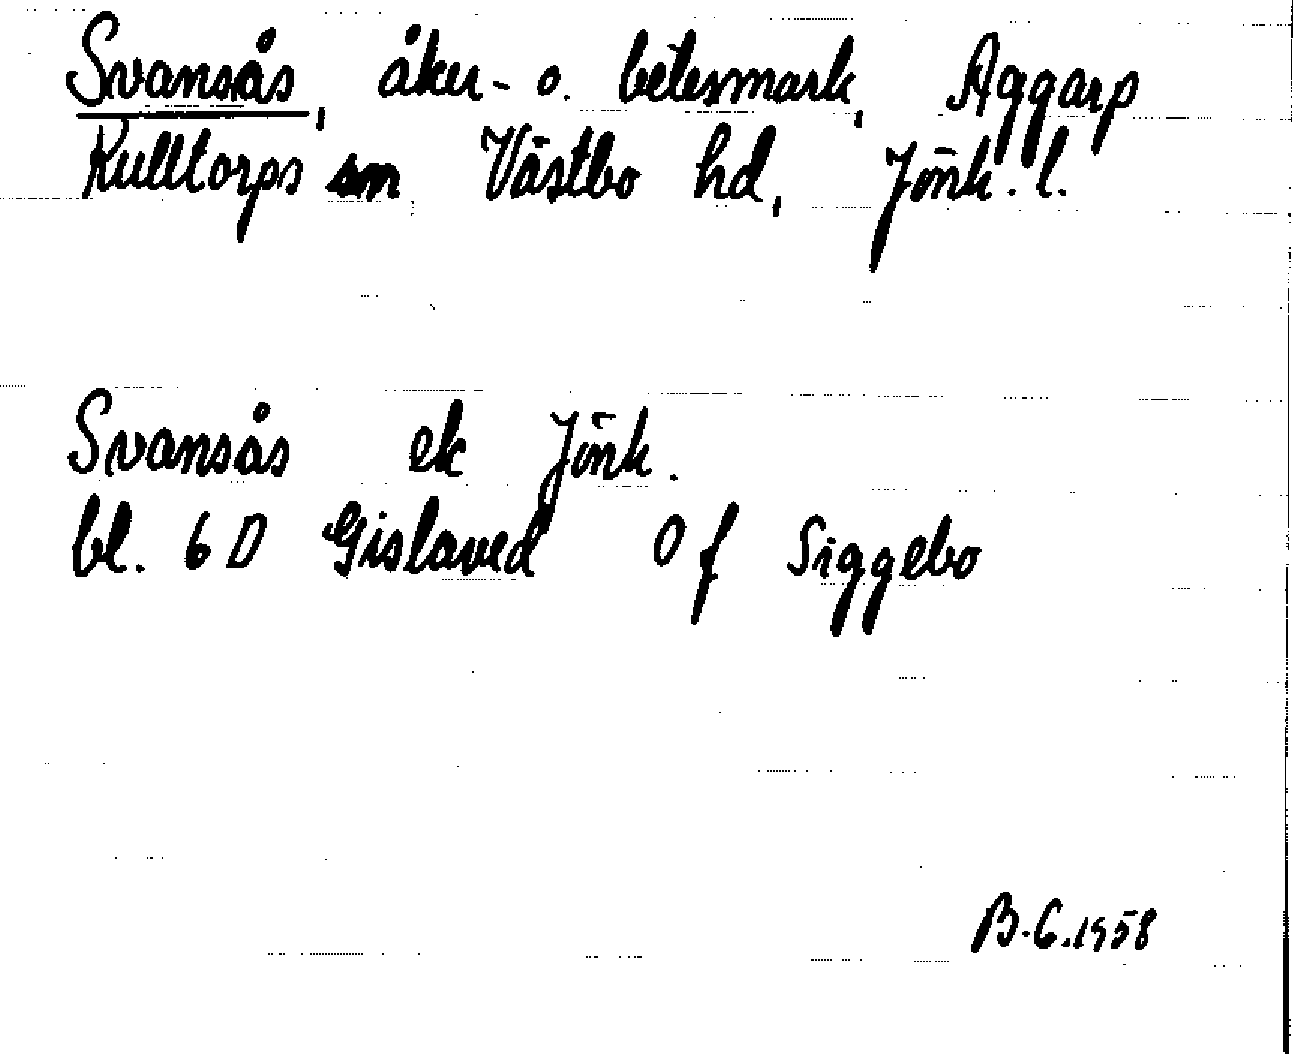 Svansås, åker- o. betesmark, Aggarp
Kulltorps sn Västbo hd, Jönk. l.
Svansås ek Jönk.
bl. 6 D Gislaved 0 f Siggebo
B.G.1958